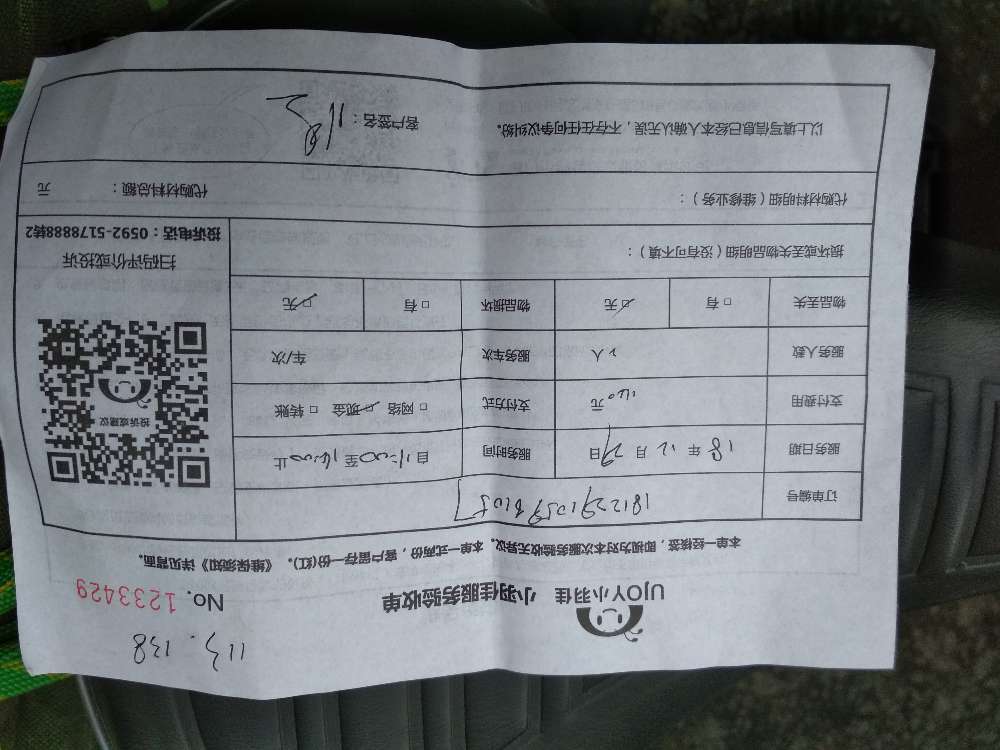 113. 138
UJOY小羽佳 小羽佳服务验收单 No. 1233429
本单一经核签，即视为对本次服务验收无异议。本单一式两份，客户留存一份(红)。《维保须知》详见背面。
订单编号
服务日期 18年12月29日 服务时间
支付费用 元 支付方式 □ 网络 ☑ 现金 □ 转账
服务人数 2人 服务车次 车/次
物品丢失 □ 有 ☑ 无 物品损坏 □ 有 ☑ 无
投诉或建议
扫码评价或投诉
投诉电话：0592-5178888转2
损坏或丢失物品明细（没有可不填）：
代购材料明细（维修业务）： 代购材料总额： 元
以上填写信息已经本人确认无误，不存在任何争议纠纷。 客户签名：